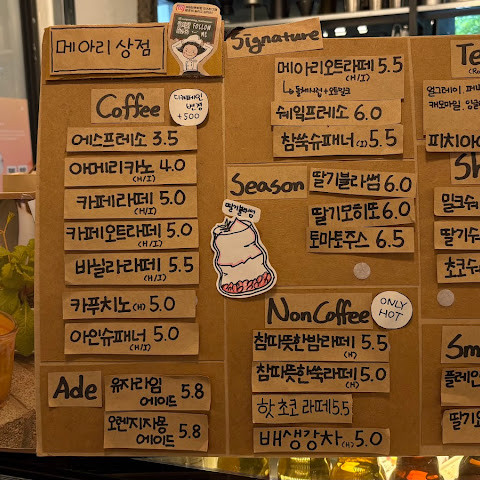 메아리 상점
FOLLOW
ME
Coffee
디카페인
변경
+500
에스프레소 3.5
아메리카노 4.0
(H/I)
카페라떼 5.0
(H/I)
카페오트라떼 5.0
(H/I)
바닐라라떼 5.5
(H/I)
카푸치노(H) 5.0
아인슈패너 5.0
(H/I)
Ade
유자라임
에이드 5.8
오렌지자몽
에이드 5.8
Signature
메아리오트라떼 5.5
(H/I)
쉐잌프레소 6.0
참쑥슈패너(I) 5.5
Season
딸기블라썸 6.0
딸기모히또 6.0
토마토주스 6.5
딸기블라썸
NonCoffee
ONLY
HOT
참따뜻한밤라떼 5.5
(H)
참따뜻한쑥라떼 5.0
(H)
핫초코라떼 5.5
배생강차(H) 5.0
Te
얼그레이, 페
캐모마일, 잉글
피치아이
Sh
밀크쉐
딸기쉐
초코쉐
Sm
플레인
딸기요